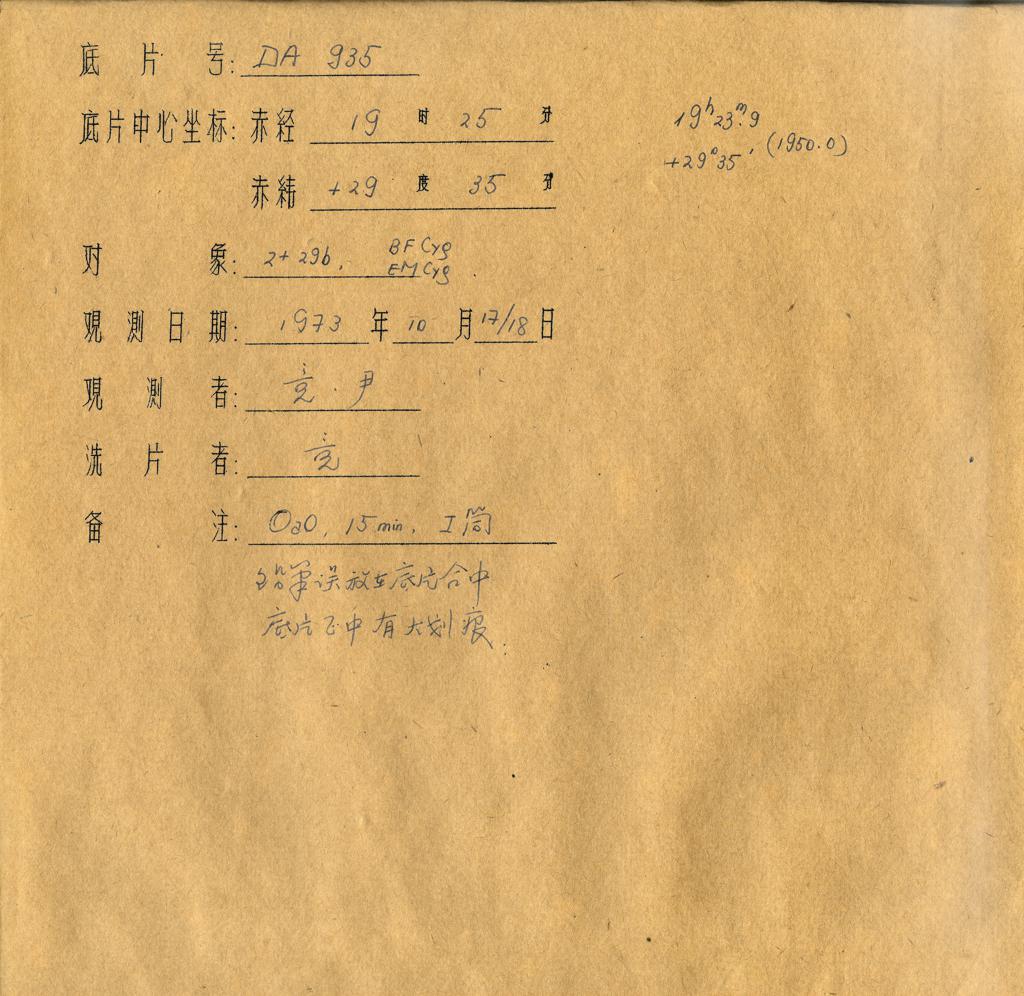 底片号: DA 935
底片中心坐标: 赤经 19 时 25 分
19h23m.9
+29°35′ (1950.0)
赤纬 +29 度 35 分
对象: 2+29b, BF Cyg
EM Cyg
观测日期: 1973 年 10 月 17/18 日
观测者: 竞·尹
洗片者: 竞
备注: OaO, 15min, I筒
铅笔误放在底片合中
底片正中有大划痕.